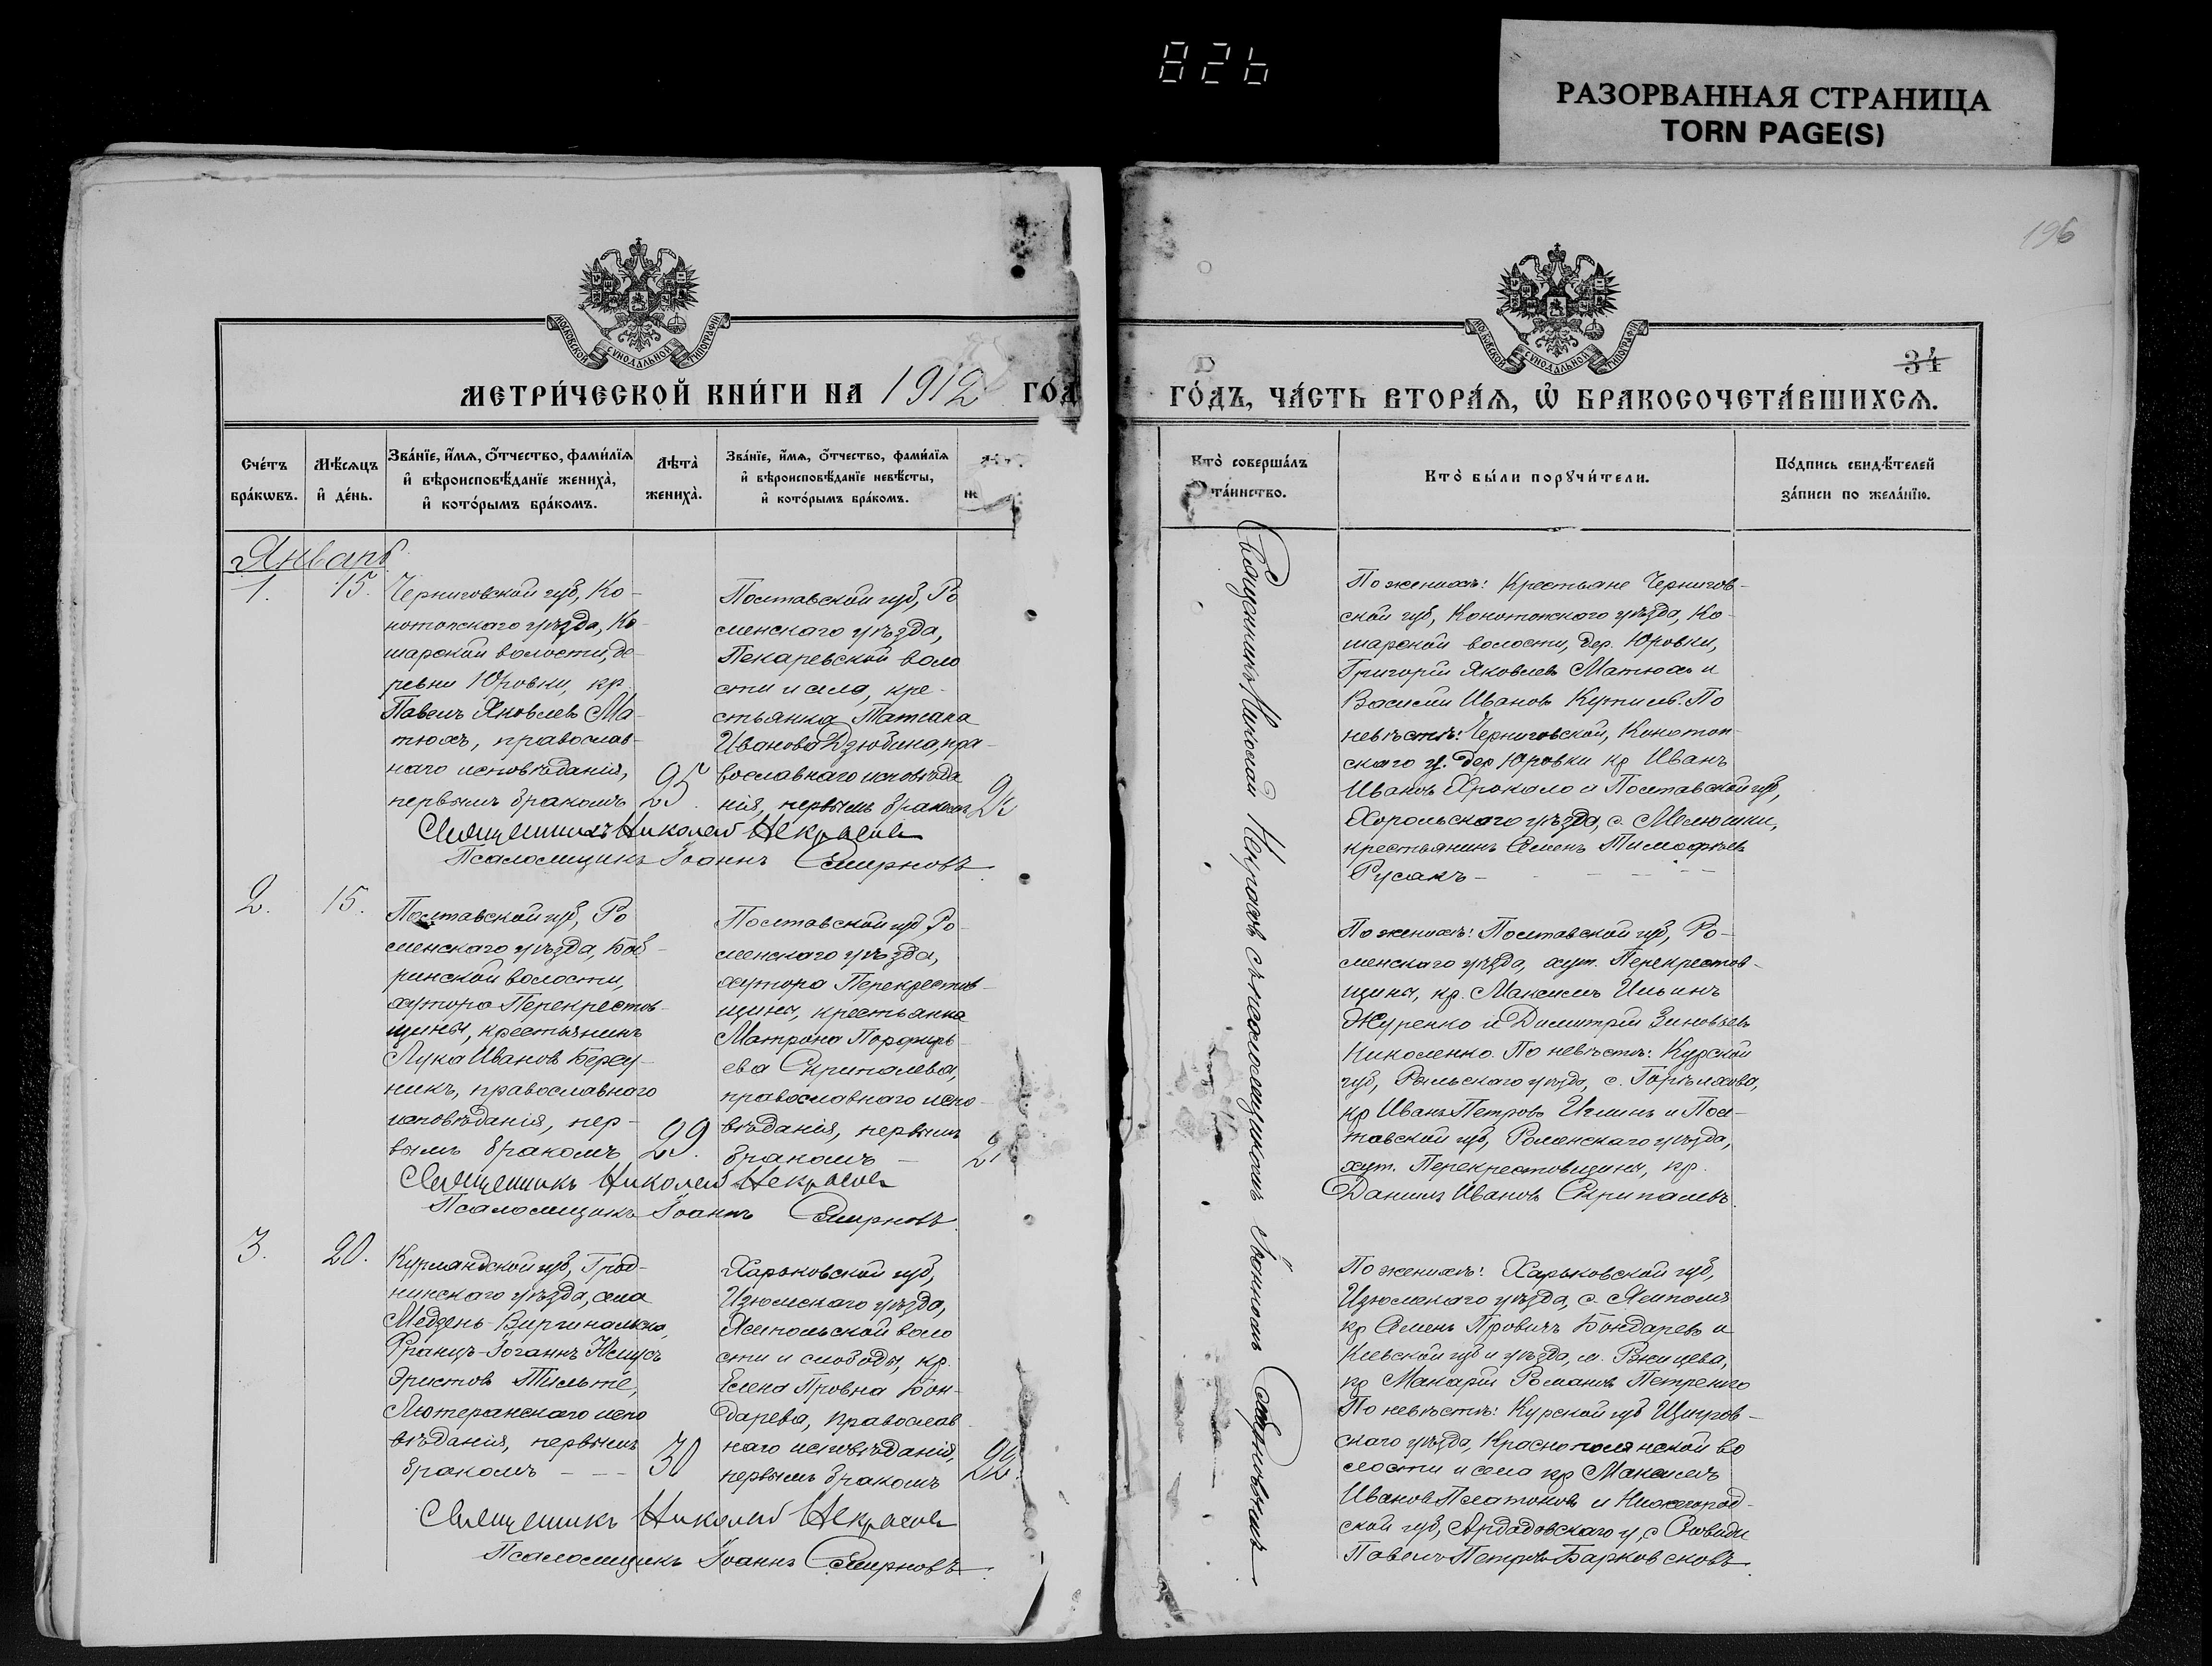 826
РАЗОРВАННАЯ СТРАНИЦА
TORN PAGE(S)
196
МОСКОВСКОЙ СУНОДАЛЬНОЙ ТИПОГРАФІИ
МЕТРИ́ЧЕСКОЙ КНИ́ГИ НА 1912 ГО́Д
Сче́тъ бра́кωвъ.
Мѣ́сяцъ и҆ де́нь.
Зва́нїе, и҆́мѧ, ѻ҆́тчество, фами́лїѧ
и҆ вѣроисповѣ́данїе жениха̀,
и҆ кото́рымъ бра́комъ.
Лѣта̀ жениха̀.
Зва́нїе, и҆́мѧ, ѻ҆́тчество, фами́лїѧ
и҆ вѣроисповѣ́данїе невѣ́сты,
и҆ кото́рымъ бра́комъ.
Январь
1. 15.
Черниговской губ, Ко-
нотопскаго уѣзда, Ко-
шарской волости, де-
ревни Юровки, кр.
Павелъ Яковлевъ Ма-
тюхъ, православ-
наго исповѣданія,
первымъ бракомъ
25.
Полтавской губ, Ро
менскаго уѣзда,
Пекаревской воло
сти и села, кре-
стьянка Татіана
Иванова Дзюбина, пра-
вославнаго исповѣда
нія, первымъ бракомъ
Священникъ Николай Некрасовъ
Псаломщикъ Іоаннъ Смирновъ
2. 15.
Полтавской губ, Ро
менскаго уѣзда, Боб-
ринской волости,
хутора Перекрестов-
щины, крестьянинъ
Лука Ивановъ
никъ, православнаго
исповѣданія, пер-
вымъ бракомъ
29.
Полтавской губ Ро-
менскаго уѣзда,
хутора Перекрестов-
щины, крестьянка
Матрона Порфирь-
ева Скрипалева,
православнаго испо-
вѣданія, первымъ
бракомъ –
Священникъ Николай Некрасовъ
Псаломщикъ Іоаннъ Смирновъ.
3. 20.
Курляндской губ, Грод-
нинскаго уѣзда, села
Медзень-Виргинальско,
Францъ-Іоганнъ
Эристовъ Тильте,
Лютеранскаго испо
вѣданія, первымъ
бракомъ – – –
30
Харьковской губ,
Изюмскаго уѣзда,
Ямпольской воло
сти и слободы, кр.
Елена Провна Бон-
дарева, православ-
наго исповѣданія,
первымъ бракомъ
22.
Священникъ Николай Некрасовъ
Псаломщикъ Іоаннъ Смирновъ.
МОСКОВСКОЙ СУНОДАЛЬНОЙ ТИПОГРАФІИ
34
ГО́ДЪ, ЧА́СТЬ ВТОРА́Ѧ, Ѽ БРАКОСОЧЕТА́ВШИХСѦ.
Кто̀ соверша́лъ
та́инство.
Кто̀ бы́ли порꙋчи́тели.
По́дпись свидѣ́телей
за́писи по жела́нїю.
Священникъ Николай Некрасовъ съ псаломщикомъ Іоанномъ Смирновымъ
По женихѣ: Крестьяне Чернигов-
ской губ, Конотопскаго уѣзда, Ко-
шарской волости, дер. Юровки,
Григорій Яковлевъ Матюхъ и
Василій Ивановъ По
невѣстѣ: Черниговской, Конотоп-
скаго у. дер Юровки кр Иванъ
Ивановъ и Полтавской губ,
Хорольскаго уѣзда, с. Мелюшки,
крестьянинъ Семенъ Тимофѣевъ
Русакъ – – – – –
По женихѣ: Полтавской губ, Ро-
менскаго уѣзда, хут. Перекрестов-
щины, кр. Максимъ Ильинъ
Журенко и Димитрій Зиновьевъ
Николенко. По невѣстѣ: Курской
губ, Рыльскаго уѣзда, с.
кр Иванъ Петровъ и Пол-
тавской губ, Роменскаго уѣзда,
хут. Перекрестовщины, кр.
Даніилъ Ивановъ Скрипалевъ.
По женихѣ: Харьковской губ,
Изюмскаго уѣзда, с. Ямполя
кр Семенъ Провичъ Бондаревъ и
Кіевской губ и уѣзда, м. Ржищева,
кр Макарій Романовъ Петренко
По невѣстѣ: Курской губ Щигров-
скаго уѣзда, Краснополянской во
лости и села кр Максимъ
Ивановъ Платоновъ и Нижегород-
ской губ, Ардадовскаго у, с
Павелъ Петровъ Барковсковъ.